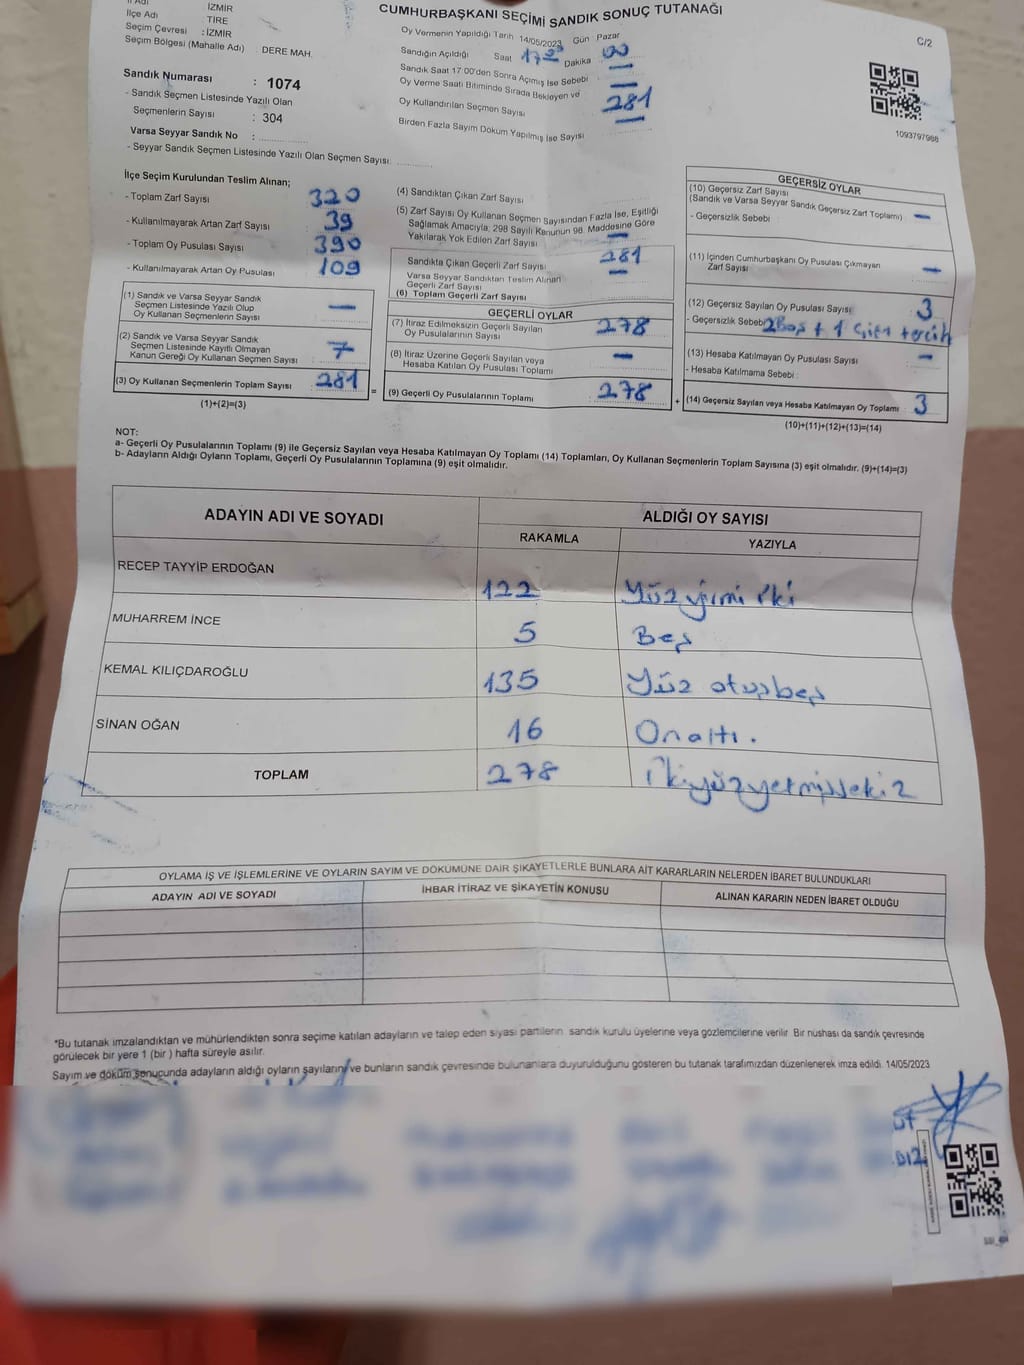 CUMHURBAŞKANI SEÇİMİ SANDIK SONUÇ TUTANAĞI
C/2
İl Adı : İZMİR
İlçe Adı : TİRE
Seçim Çevresi : İZMİR
Seçim Bölgesi (Mahalle Adı) : DERE MAH.
Sandık Numarası : 1074
- Sandık Seçmen Listesinde Yazılı Olan
Seçmenlerin Sayısı : 304
Varsa Seyyar Sandık No :
- Seyyar Sandık Seçmen Listesinde Yazılı Olan Seçmen Sayısı:
Oy Vermenin Yapıldığı Tarih 14/05/2023 Gün Pazar
Sandığın Açıldığı Saat 17 Dakika 00
Sandık Saat 17:00'den Sonra Açımış İse Sebebi —
Oy Verme Saati Bitiminde Sırada Bekleyen ve —
Oy Kullandırılan Seçmen Sayısı 281
Birden Fazla Sayım Döküm Yapılmış İse Sayısı —
1093797988
İlçe Seçim Kurulundan Teslim Alınan;
- Toplam Zarf Sayısı 320
- Kullanılmayarak Artan Zarf Sayısı 39
- Toplam Oy Pusulası Sayısı 390
- Kullanılmayarak Artan Oy Pusulası 109
(1) Sandık ve Varsa Seyyar Sandık
Seçmen Listesinde Yazılı Olup
Oy Kullanan Seçmenlerin Sayısı —
(2) Sandık ve Varsa Seyyar Sandık
Seçmen Listesinde Kayıtlı Olmayan
Kanun Gereği Oy Kullanan Seçmen Sayısı 7
(3) Oy Kullanan Seçmenlerin Toplam Sayısı 281 =
(1)+(2)=(3)
(4) Sandıktan Çıkan Zarf Sayısı
(5) Zarf Sayısı Oy Kullanan Seçmen Sayısından Fazla İse, Eşitliği
Sağlamak Amacıyla; 298 Sayılı Kanunun 98. Maddesine Göre
Yakılarak Yok Edilen Zarf Sayısı —
Sandıkta Çıkan Geçerli Zarf Sayısı 281
Varsa Seyyar Sandıktan Teslim Alınan
Geçerli Zarf Sayısı —
(6) Toplam Geçerli Zarf Sayısı
GEÇERLİ OYLAR
(7) İtiraz Edilmeksizin Geçerli Sayılan
Oy Pusulalarının Sayısı 278
(8) İtiraz Üzerine Geçerli Sayılan veya
Hesaba Katılan Oy Pusulası Toplamı —
(9) Geçerli Oy Pusulalarının Toplamı 278 +
GEÇERSİZ OYLAR
(10) Geçersiz Zarf Sayısı
(Sandık ve Varsa Seyyar Sandık Geçersiz Zarf Toplamı) —
- Geçersizlik Sebebi :
(11) İçinden Cumhurbaşkanı Oy Pusulası Çıkmayan
Zarf Sayısı —
(12) Geçersiz Sayılan Oy Pusulası Sayısı 3
- Geçersizlik Sebebi 2 Boş + 1 Çift tercih
(13) Hesaba Katılmayan Oy Pusulası Sayısı —
- Hesaba Katılmama Sebebi :
(14) Geçersiz Sayılan veya Hesaba Katılmayan Oy Toplamı 3
(10)+(11)+(12)+(13)=(14)
NOT:
a- Geçerli Oy Pusulalarının Toplamı (9) ile Geçersiz Sayılan veya Hesaba Katılmayan Oy Toplamı (14) Toplamları, Oy Kullanan Seçmenlerin Toplam Sayısına (3) eşit olmalıdır. (9)+(14)=(3)
b- Adayların Aldığı Oyların Toplamı, Geçerli Oy Pusulalarının Toplamına (9) eşit olmalıdır.
ADAYIN ADI VE SOYADI ALDIĞI OY SAYISI
RAKAMLA YAZIYLA
RECEP TAYYİP ERDOĞAN 122 Yüz yirmi iki
MUHARREM İNCE 5 Beş
KEMAL KILIÇDAROĞLU 135 Yüz otuzbeş
SİNAN OĞAN 16 Onaltı.
TOPLAM 278 İkiyüzyetmişsekiz
OYLAMA İŞ VE İŞLEMLERİNE VE OYLARIN SAYIM VE DÖKÜMÜNE DAİR ŞİKAYETLERLE BUNLARA AİT KARARLARIN NELERDEN İBARET BULUNDUKLARI
ADAYIN ADI VE SOYADI İHBAR İTİRAZ VE ŞİKAYETİN KONUSU ALINAN KARARIN NEDEN İBARET OLDUĞU
*Bu tutanak imzalandıktan ve mühürlendikten sonra seçime katılan adayların ve talep eden siyasi partilerin, sandık kurulu üyelerine veya gözlemcilerine verilir. Bir nüshası da sandık çevresinde
görülecek bir yere 1 (bir ) hafta süreyle asılır.
Sayım ve döküm sonucunda adayların aldığı oyların sayılarını ve bunların sandık çevresinde bulunanlara duyurulduğunu gösteren bu tutanak tarafımızdan düzenlenerek imza edildi. 14/05/2023